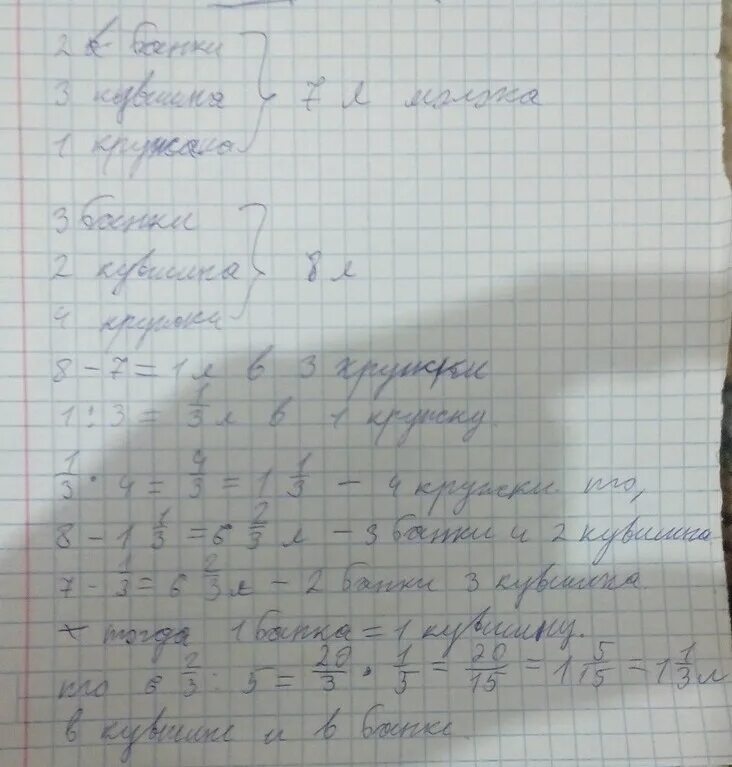 2 банки
3 кувшина 7 л молока
1 кружка
3 банки
2 кувшина 8 л
4 кружки
8 - 7 = 1 л в 3 кружки
1 : 3 = 1/3 л в 1 кружку
1/3 · 4 = 4/3 = 1 1/3 - 4 кружки то,
8 - 1 1/3 = 6 2/3 л - 3 банки и 2 кувшина
7 - 1/3 = 6 2/3 л - 2 банки 3 кувшина
тогда 1 банка = 1 кувшину.
то 6 2/3 : 5 = 20/3 · 1/5 = 20/15 = 1 5/15 = 1 1/3 л
в кувшине и в банке